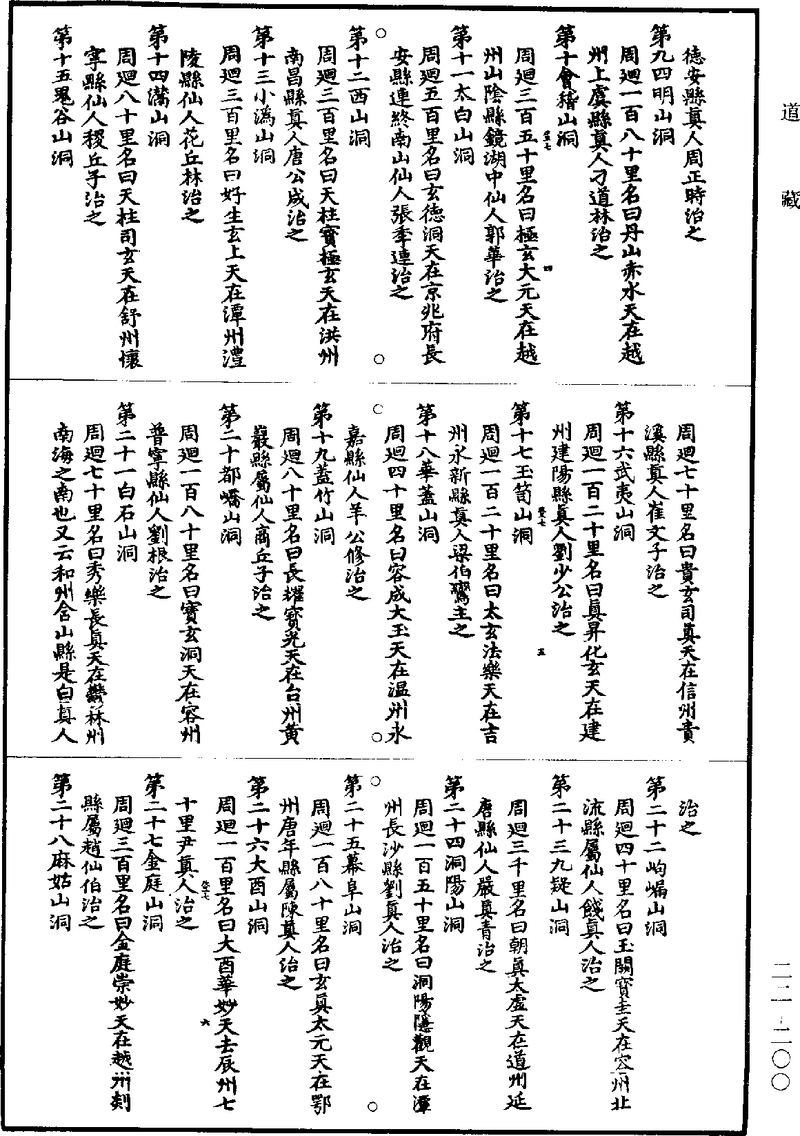 道藏
德安縣真人周正時治之
第九四明山洞
周迴一百八十里名曰丹山赤水天在越
州上虞縣真人刁道林治之
第十會稽山洞
周迴三百五十里名曰極玄大元天在越
州山陰縣鏡湖中仙人郭華治之
第十一太白山洞
周迴五百里名曰玄德洞天在京兆府長
安縣連終南山仙人張季連治之
第十二西山洞
周迴三百里名曰天柱寶極玄天在洪州
南昌縣真人唐公成治之
第十三小溈山洞
周迴三百里名曰好生玄上天在潭州澧
陵縣仙人花丘林治之
第十四灊山洞
周迴八十里名曰天柱司玄天在舒州懷
寧縣仙人稷丘子治之
第十五鬼谷山洞
周迴七十里名曰貴玄司真天在信州貴
溪縣真人崔文子治之
第十六武夷山洞
周迴一百二十里名曰真昇化玄天在建
州建陽縣真人劉少公治之
第十七玉笥山洞
周迴一百二十里名曰太玄法樂天在吉
州永新縣真人梁伯鸞主之
第十八華蓋山洞
周迴四十里名曰容成大玉天在温州永
嘉縣仙人羊公修治之
第十九蓋竹山洞
周迴八十里名曰長耀寶光天在台州黃
巖縣屬仙人商丘子治之
第二十都嶠山洞
周迴一百八十里名曰寶玄洞天在容州
普寧縣仙人劉根治之
第二十一白石山洞
周迴七十里名曰秀樂長真天在鬱林州
南海之南也又云和州含山縣是白真人
治之
第二十二岣嶁山洞
周迴四十里名曰玉闕寶圭天在容州北
流縣屬仙人餞真人治之
第二十三九疑山洞
周迴三千里名曰朝真太虛天在道州延
唐縣仙人嚴真青治之
第二十四洞陽山洞
周迴一百五十里名曰洞陽隱觀天在潭
州長沙縣劉真人治之
第二十五幕阜山洞
周迴一百八十里名曰玄真太元天在鄂
州唐年縣屬陳真人治之
第二十六大酉山洞
周迴一百里名曰大酉華妙天去辰州七
十里尹真人治之
第二十七金庭山洞
周迴三百里名曰金庭崇妙天在越州剡
縣屬趙仙伯治之
第二十八麻姑山洞
二二-二〇〇